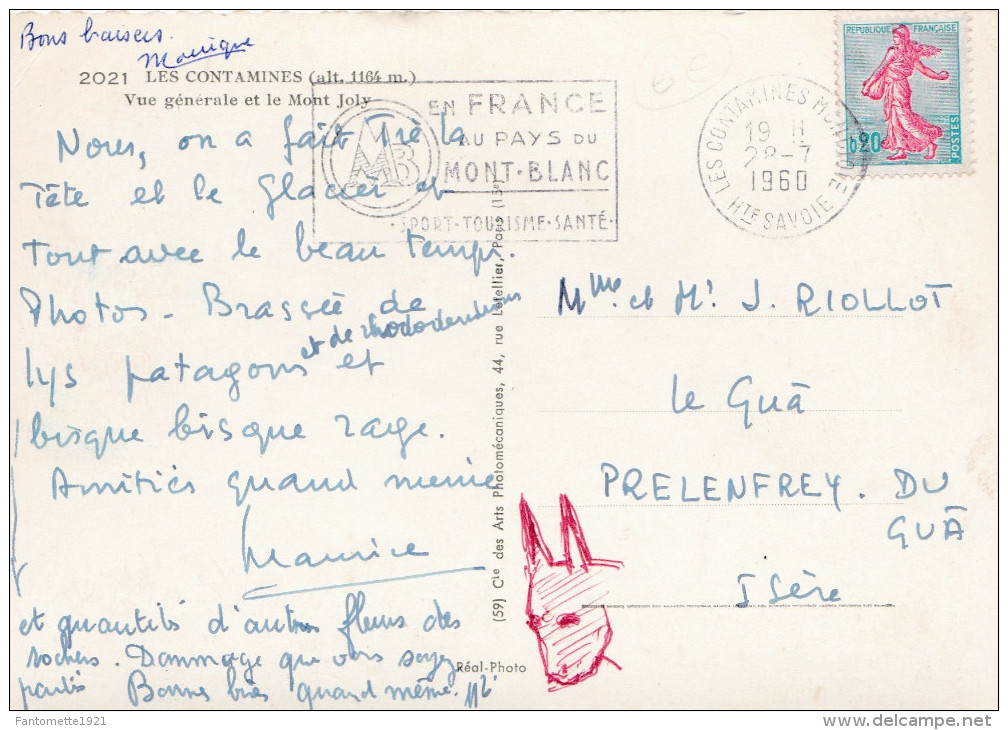 Bons baisers.
Monique
2021 LES CONTAMINES (alt. 1164 m.)
Vue générale et le Mont Joly
Nous, on a fait Tré la
Tête et le Glacier et
tout avec le beau temps.
Photos - Brassée de
et de rhododendrons
lys patagons et
bisque bisque rage.
Amitiés quand même
Maurice
et quantités d'autres fleurs des
rochers. Dommage que vous soyez
partis Bonnes bises quand même.
EN FRANCE
AU PAYS DU
MONT-BLANC
SPORT-TOURISME-SANTÉ
MB
LES CONTAMINES MONTJOIE
19 H
28-7
1960
HTE SAVOIE
REPUBLIQUE FRANÇAISE
0,20
POSTES
6€
Mme et Mr J. RIOLLOT
le Guâ
PRELENFREY. DU
GUÂ
Isère
(59) Cie des Arts Photomécaniques, 44, rue Letellier, Paris (15e)
Réal-Photo
Fantomette1921
www.delcampe.net